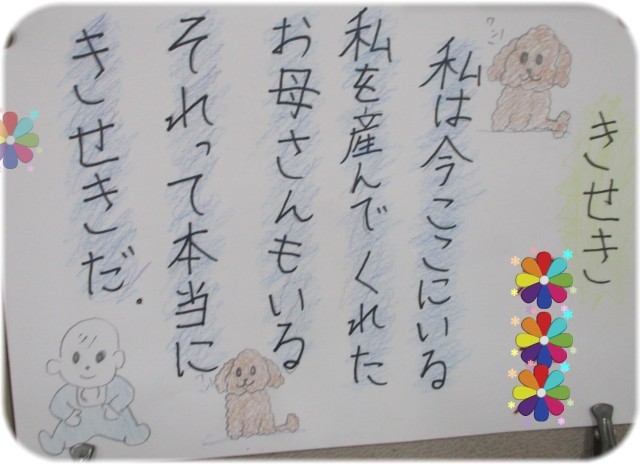 きせき
ワン!
私は今ここにいる
私を産んでくれた
お母さんもいる
それって本当に
きせきだ.